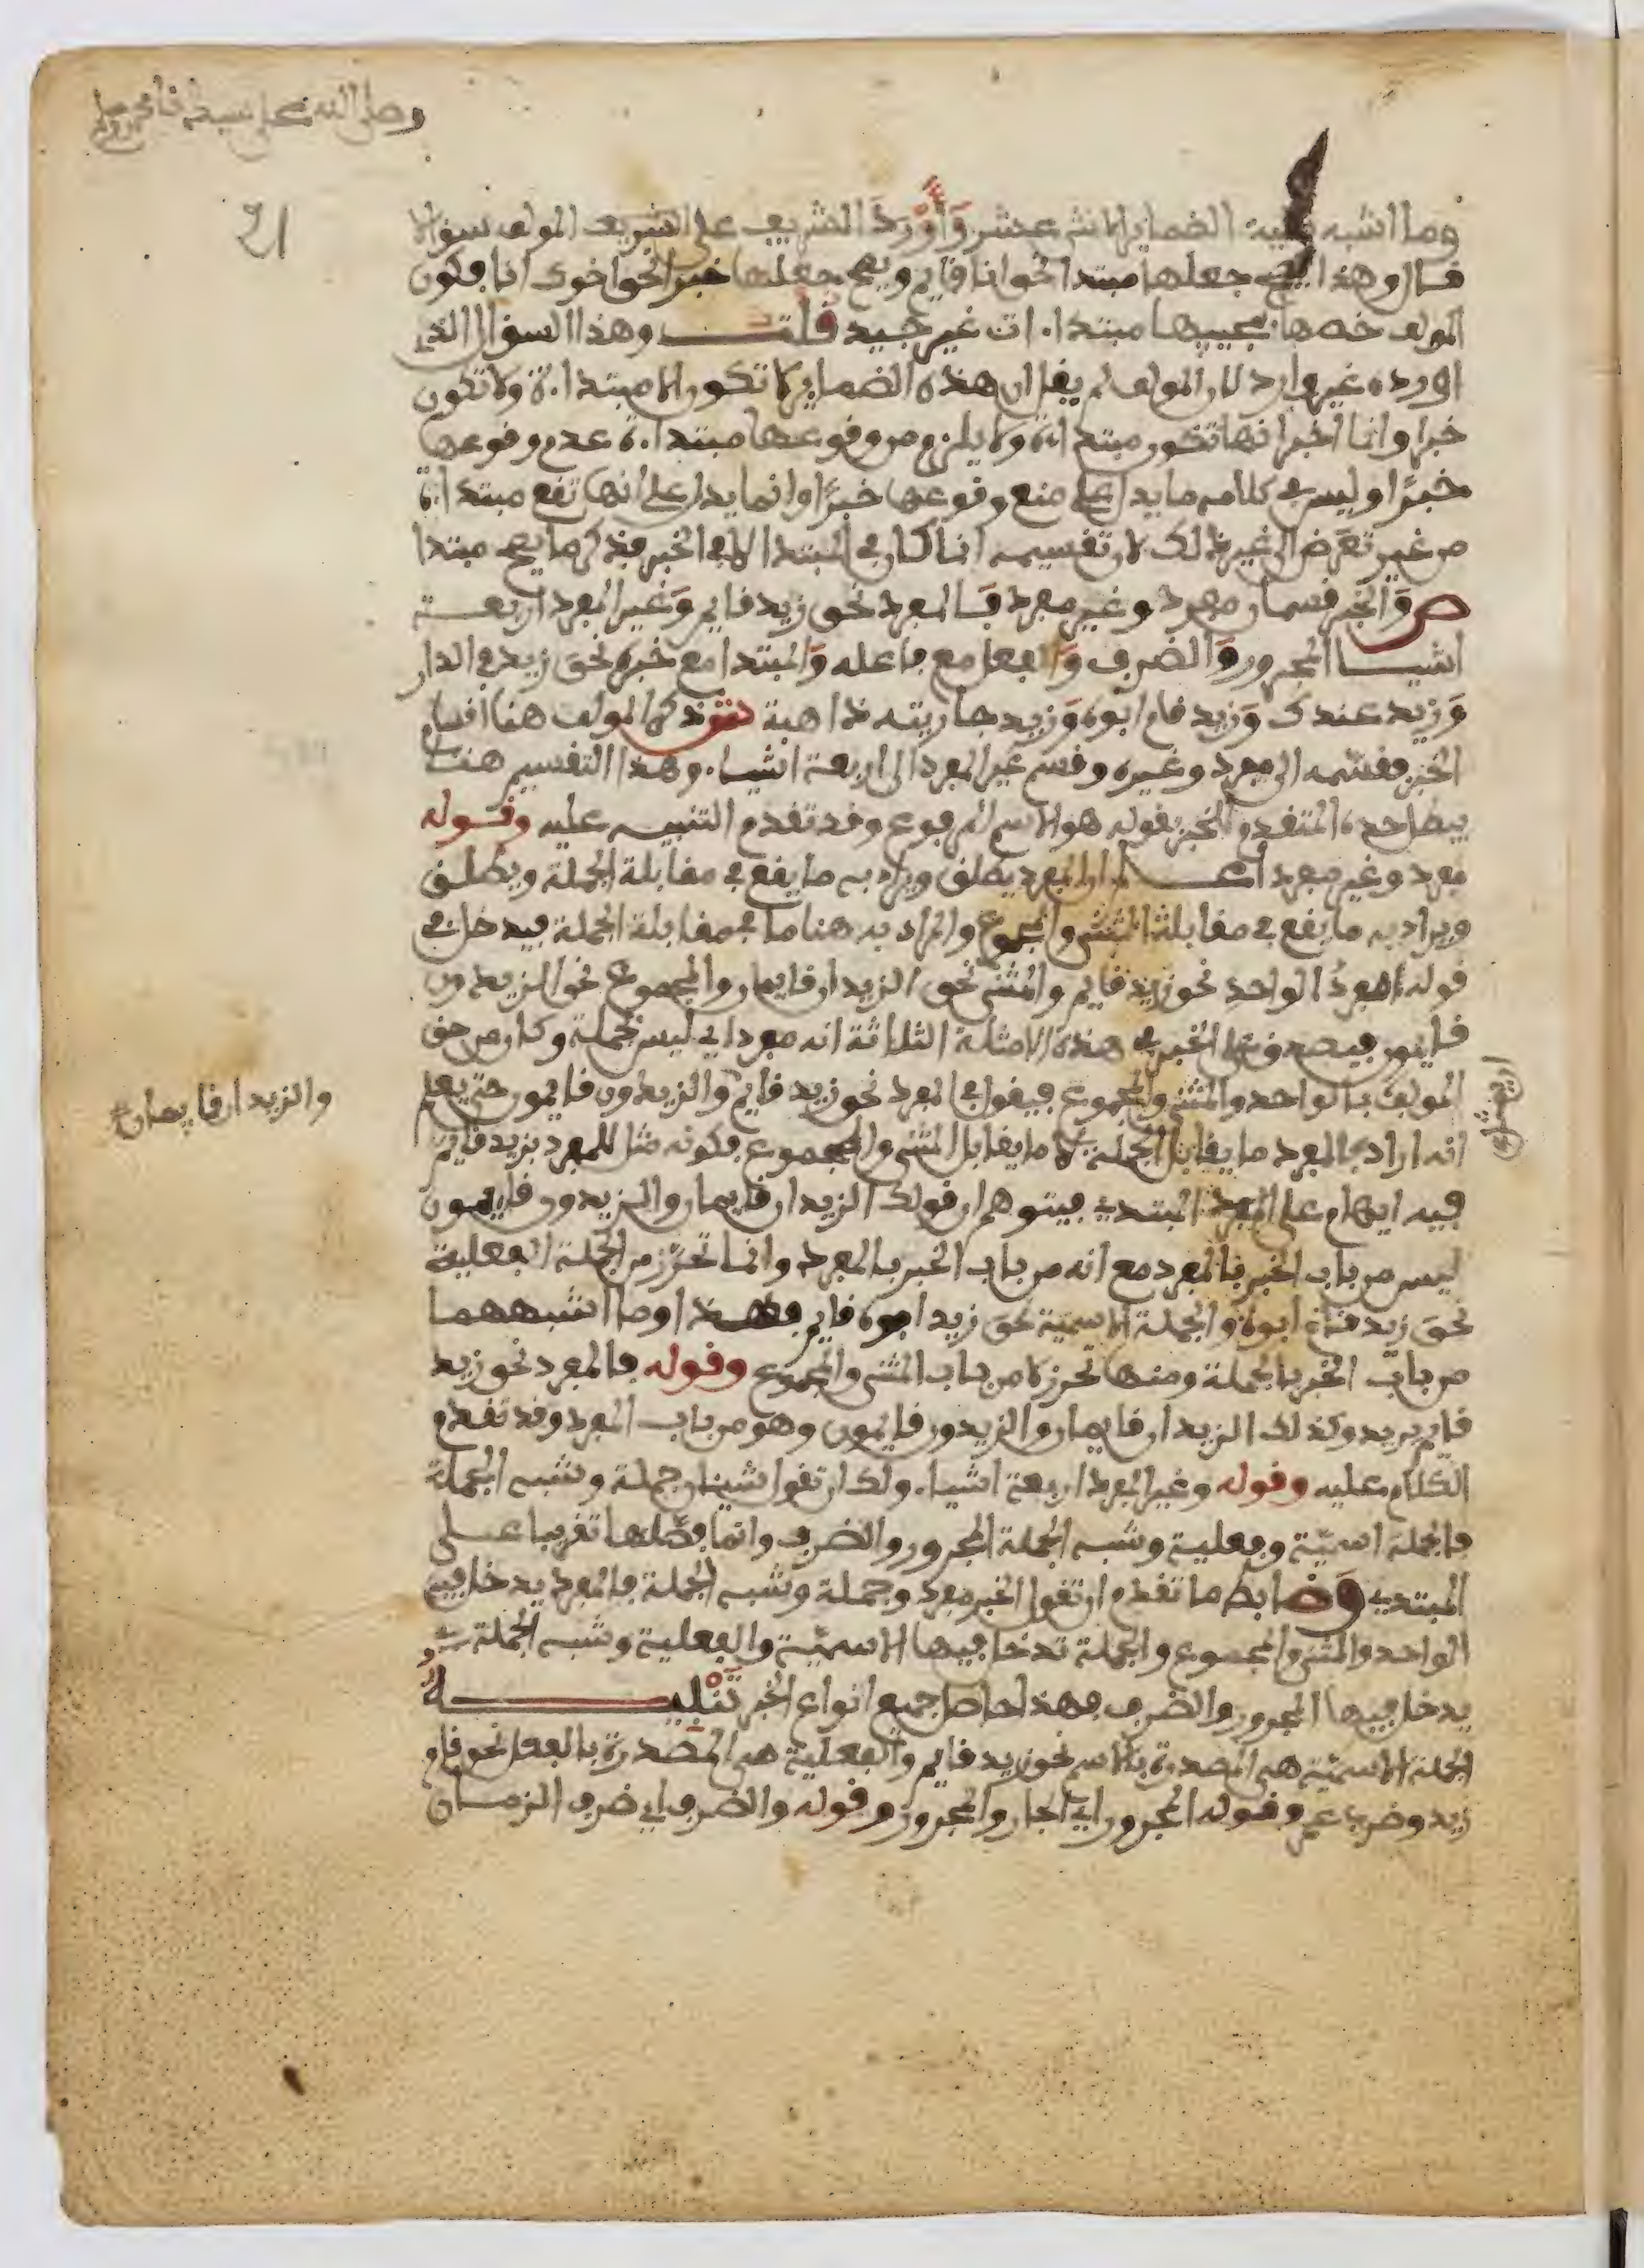 وصلى الله على سيدنا محمد وءاله
21
وما اشبه بقية الضماير الاثنى عشر وأورد الشريف على الشريف المولف سؤالا
فقال وهذا يصح جعلها مبتدا نحو انا قايم ويصح جعلها خبرا نحو اخوك انا فكون
المولف خصها بمجييها مبتداءات غير جيد قلت وهذا السؤال الذي
اورده غير وارد لان المولف لم يقل ان هذه الضماير لا تكون الا مبتداءة ولا تكون
خبرا وانما اخبر انها تكون مبتداءة ولا يلزم من وقوعها مبتداءة عدم وقوعها
خبرا وليس في كلامه ما يدل على منع وقوعها خبرا وانما يدل على انها تقع مبتداءة
من غير تعرض الى غير ذلك لان تقسيمه انما كان في المبتدا لا في الخبر فذكر ما يصح مبتدا
ص والخبر قسمان مفرد وغير مفرد فالمفرد نحو زيد قايم وغير المفرد اربعة
اشيا المجرور والضرف والفعل مع فاعله والمبتدا مع خبره نحو زيد في الدار
وزيد عندك وزيد قام ابوه وزيد جاريته ذاهبة ش ذكر المولف هنا اقسام
الخبر فقسمه الى مفرد وغيره وقسم غير المفرد الى اربعة اشياء وهذا التقسيم هنا
يبطل حده المتقدم للخبر بقوله هو الاسم المرفوع وقد تقدم التنبيه عليه وقوله
مفرد وغير مفرد اعلم ان المفرد يطلق ويراد به ما يقع في مقابلة الجملة ويطلق
ويراد به ما يقع في مقابلة المثنى والمجموع والمراد به هنا ما في مقابلة الجملة فيدخل في
قوله المفرد الواحد نحو زيد قايم والمثنى نحو الزيدان قايمان والمجموع نحو الزيدون
قايمون فيصدق على الخبر في هذه الامثلة الثلاثة انه مفرد اي ليس بجملة وكان من حق
المولف ان يمثل بالواحد والمثنى والمجموع فيقول في المفرد نحو زيد قايم والزيدون قايمون حتى يعلم
والزيدان قايمان صح
انه اراد بالمفرد ما يقابل الجملة لا ما يقابل المثنى والمجموع فكونه مثل للمفرد بزيد قايم
فيه ايهام على المبتدي فيتوهم ان قولك الزيدان قايمان والزيدون قايمون
ليس من باب الخبر بالمفرد مع انه من باب الخبر بالمفرد وانما تحرز من الجملة الفعلية
نحو زيد قام ابوه والجملة الاسمية نحو زيد ابوه قايم فهذا وما اشبههما
من باب الخبر بالجملة ومنها تحرز لا من باب المثنى والمجموع وقوله فالمفرد نحو زيد
قايم يريد وكذلك الزيدان قايمان والزيدون قايمون وهو من باب المفرد وقد تقدم
الكلام عليه وقوله وغير المفرد اربعة اشياء ولك ان تقول شيئان جملة وشبه الجملة
فالجملة اسمية وفعلية وشبه الجملة المجرور والضرف وانما فصلها تقريبا على
المبتدي وضابط ما تقدم ان تقول الخبر مفرد وجملة وشبه الجملة فالمفرد يدخل فيه
الواحد والمثنى والمجموع والجملة تدخل فيها الاسمية والفعلية وشبه الجملة
يدخل فيها المجرور والضرف فهذا حاصل جميع انواع الخبر تنبيه
الجملة الاسمية هي المصدرة بالاسم نحو زيد قايم والفعلية هي المصدرة بالفعل نحو قام
زيد وضرب عمر وقوله المجرور اي الجار والمجرور وقوله والضرف اي ضرف الزمان